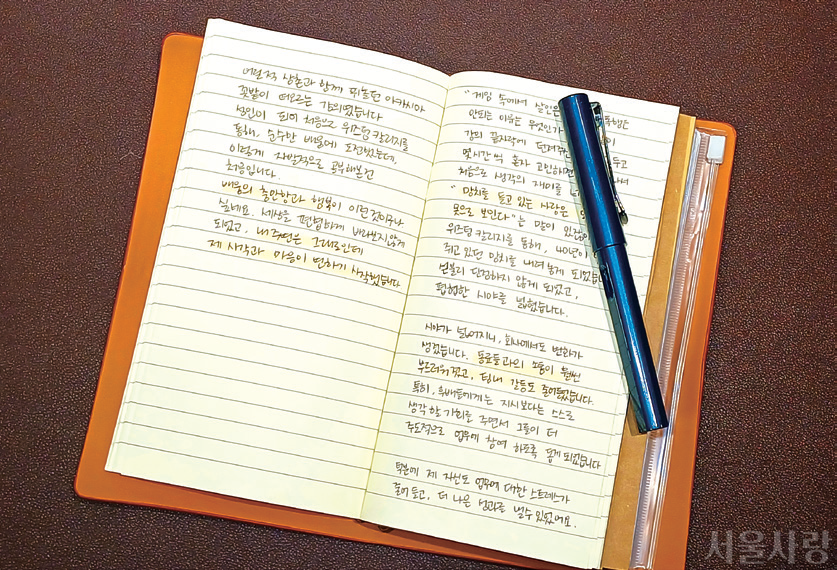 어린적 삼촌과 함께 뛰놀던 아카시아
꽃밭이 떠오르는 강의였습니다
성인이 되어 처음으로 위즈덤 칼리지를
통해, 순수한 배움에 도전했는데,
이렇게 자발적으로 공부해본건
처음입니다.
배움의 충만함과 행복이 이런것이구나
싶네요. 세상을 편협하게 바라보지않게
되었고, 내 주변은 그대로인데
제 시각과 마음이 변하기 시작했습니다
"게임 속에서 살인은 폭행은
안되는 이유는 무엇인가
강의 끝자락에 두고
몇시간 씩 혼자
처음으로 생각의 재미를
"망치를 들고 있는 사람은
못으로 보인다"는 말이
위즈덤 칼리지를 통해, 40년이
쥐고 있던 망치를 내려놓게 되었습니
섣불리 단정하지 않게 되었고,
편협한 시야를 넓혔습니다.
시야가 넓어지니, 회사에서도 변화가
생겼습니다. 동료들과의 소통이 훨씬
부드러워 졌고, 팀내 갈등도 줄어들었습니다.
특히, 후배들에게는 지시보다는 스스로
생각 할 기회를 주면서 그들이 더
주도적으로 업무에 참여 하도록 돕게 되었습니다
덕분에 제 자신도 업무에 대한 스트레스가
줄어 들고, 더 나은 성과를 낼수 있었어요.
서울사랑